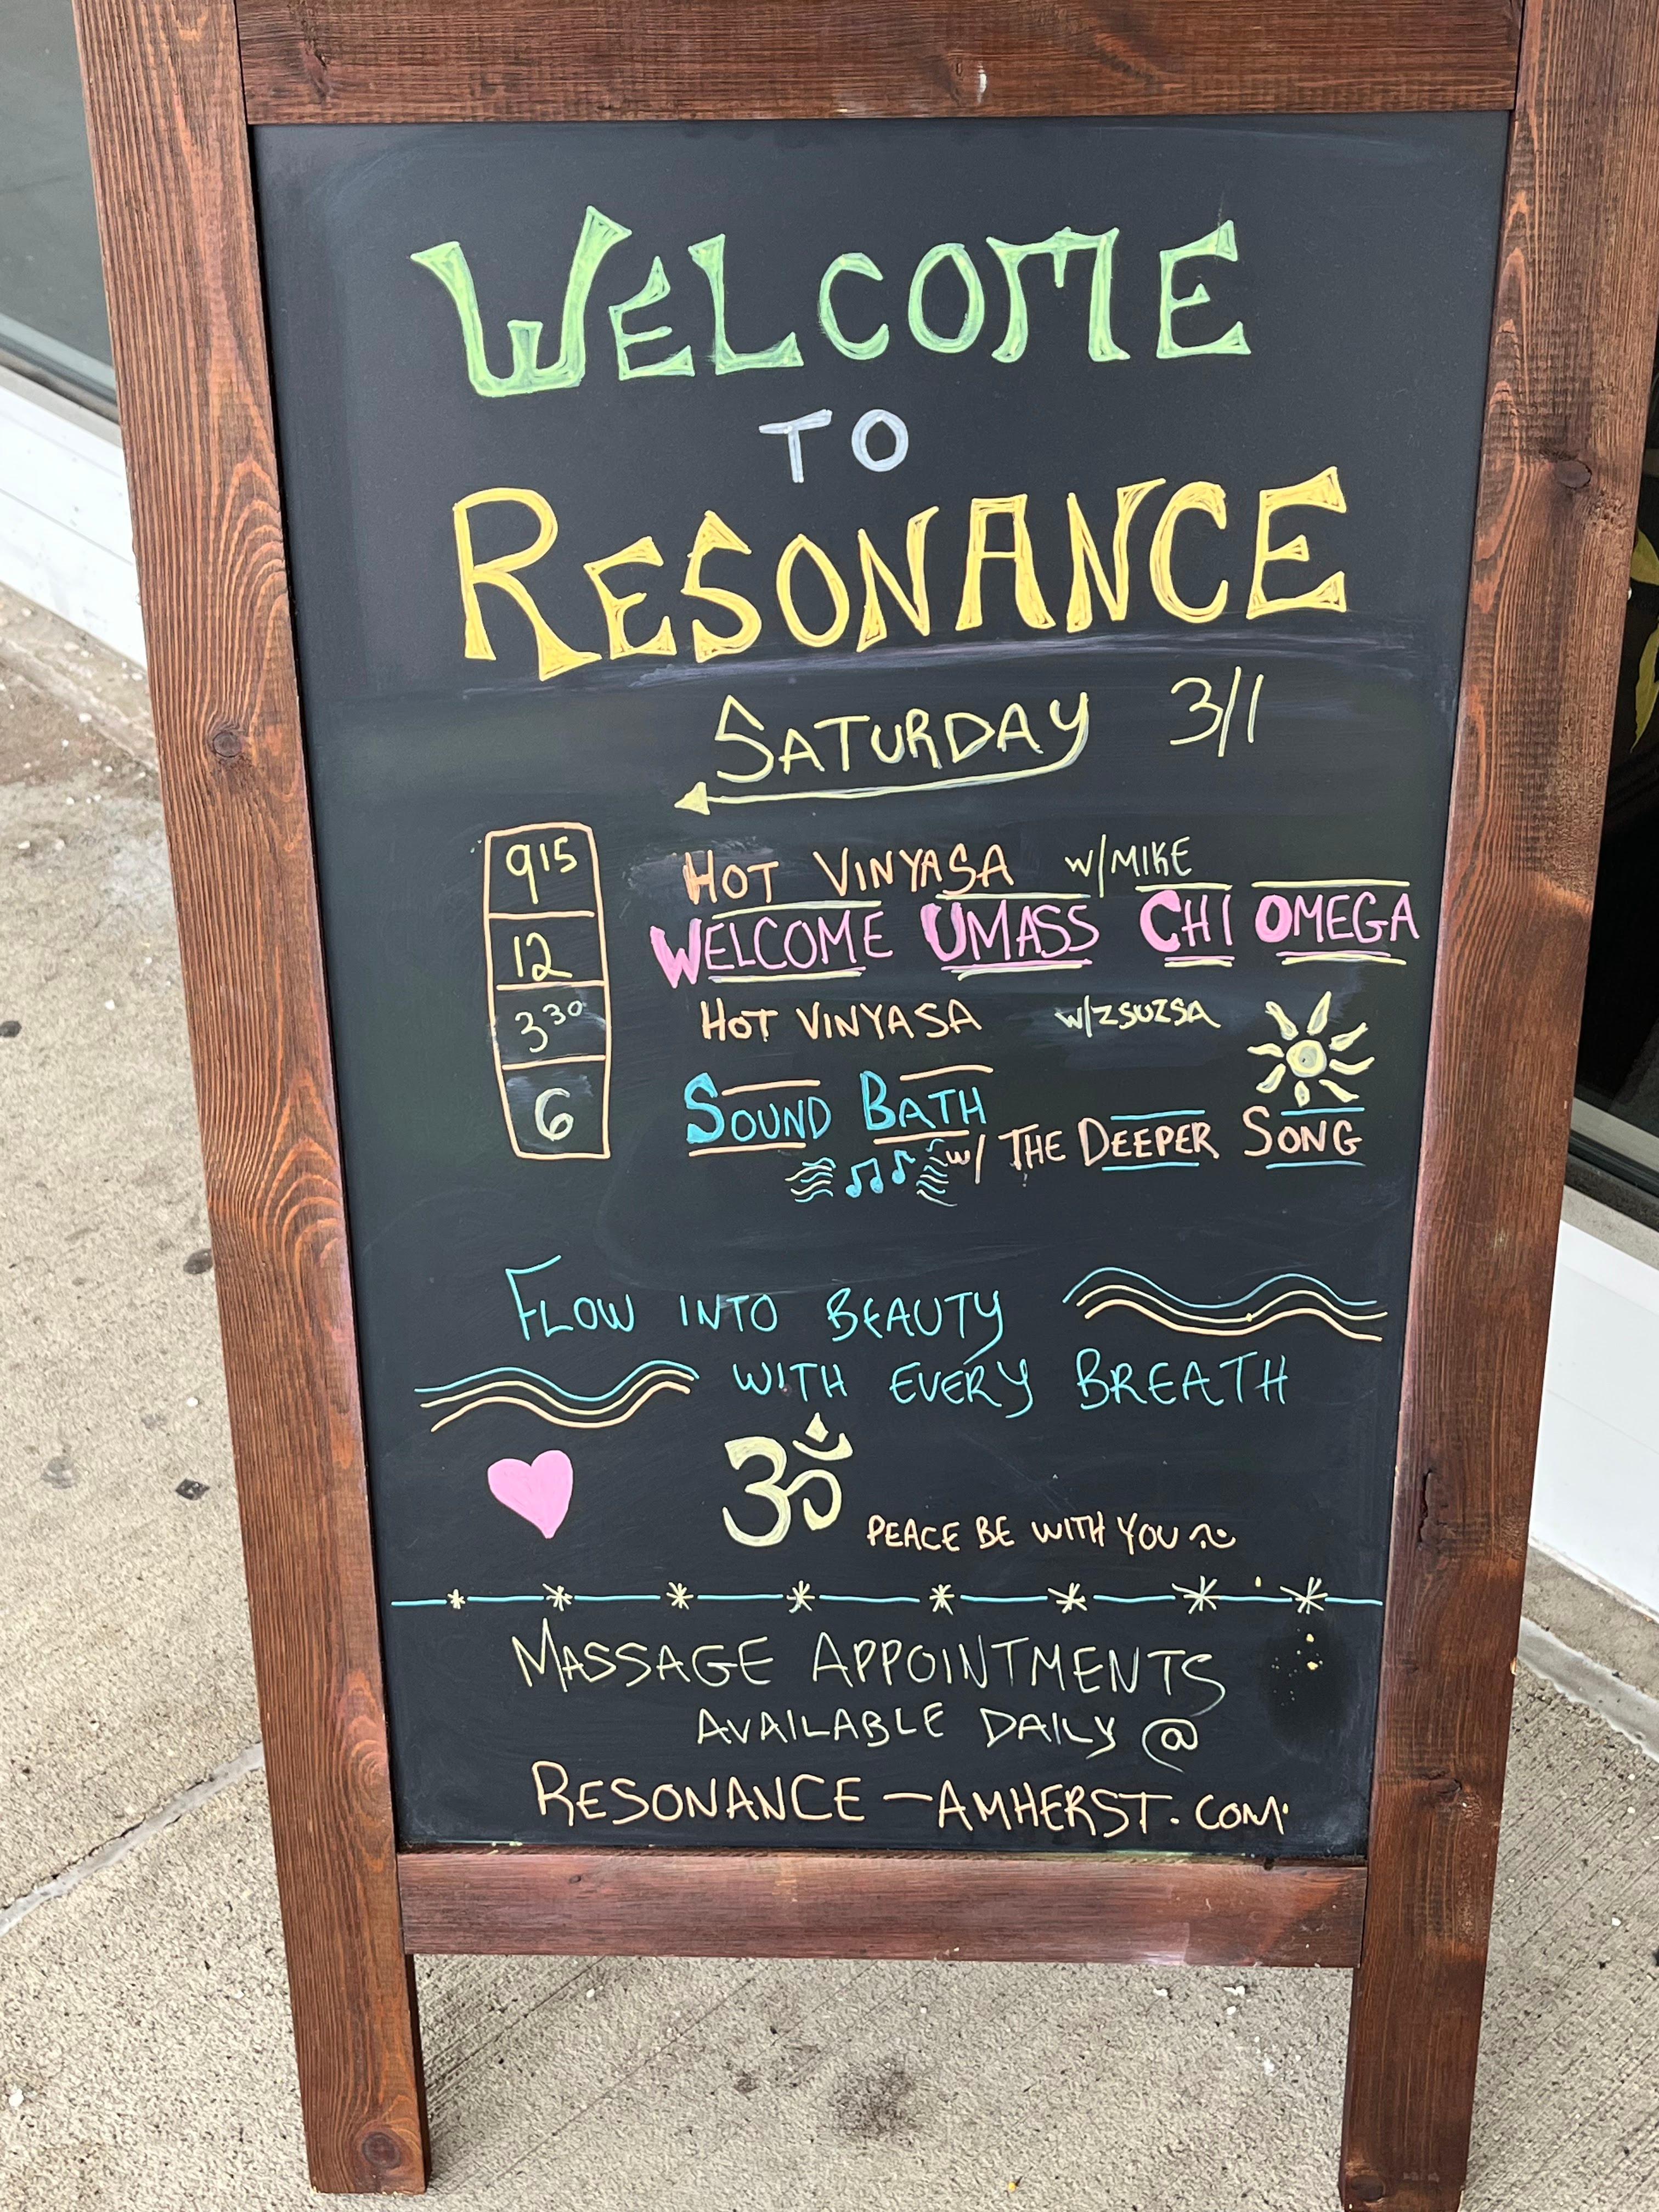 WELCOME
TO
RESONANCE
SATURDAY 3/1
915 HOT VINYASA w/MIKE
12 WELCOME UMASS CHI OMEGA
330 HOT VINYASA w/ZSUZSA
6 SOUND BATH
w/ THE DEEPER SONG
FLOW INTO BEAUTY
WITH EVERY BREATH
ॐ
PEACE BE WITH YOU
MASSAGE APPOINTMENTS
AVAILABLE DAILY @
RESONANCE-AMHERST.COM